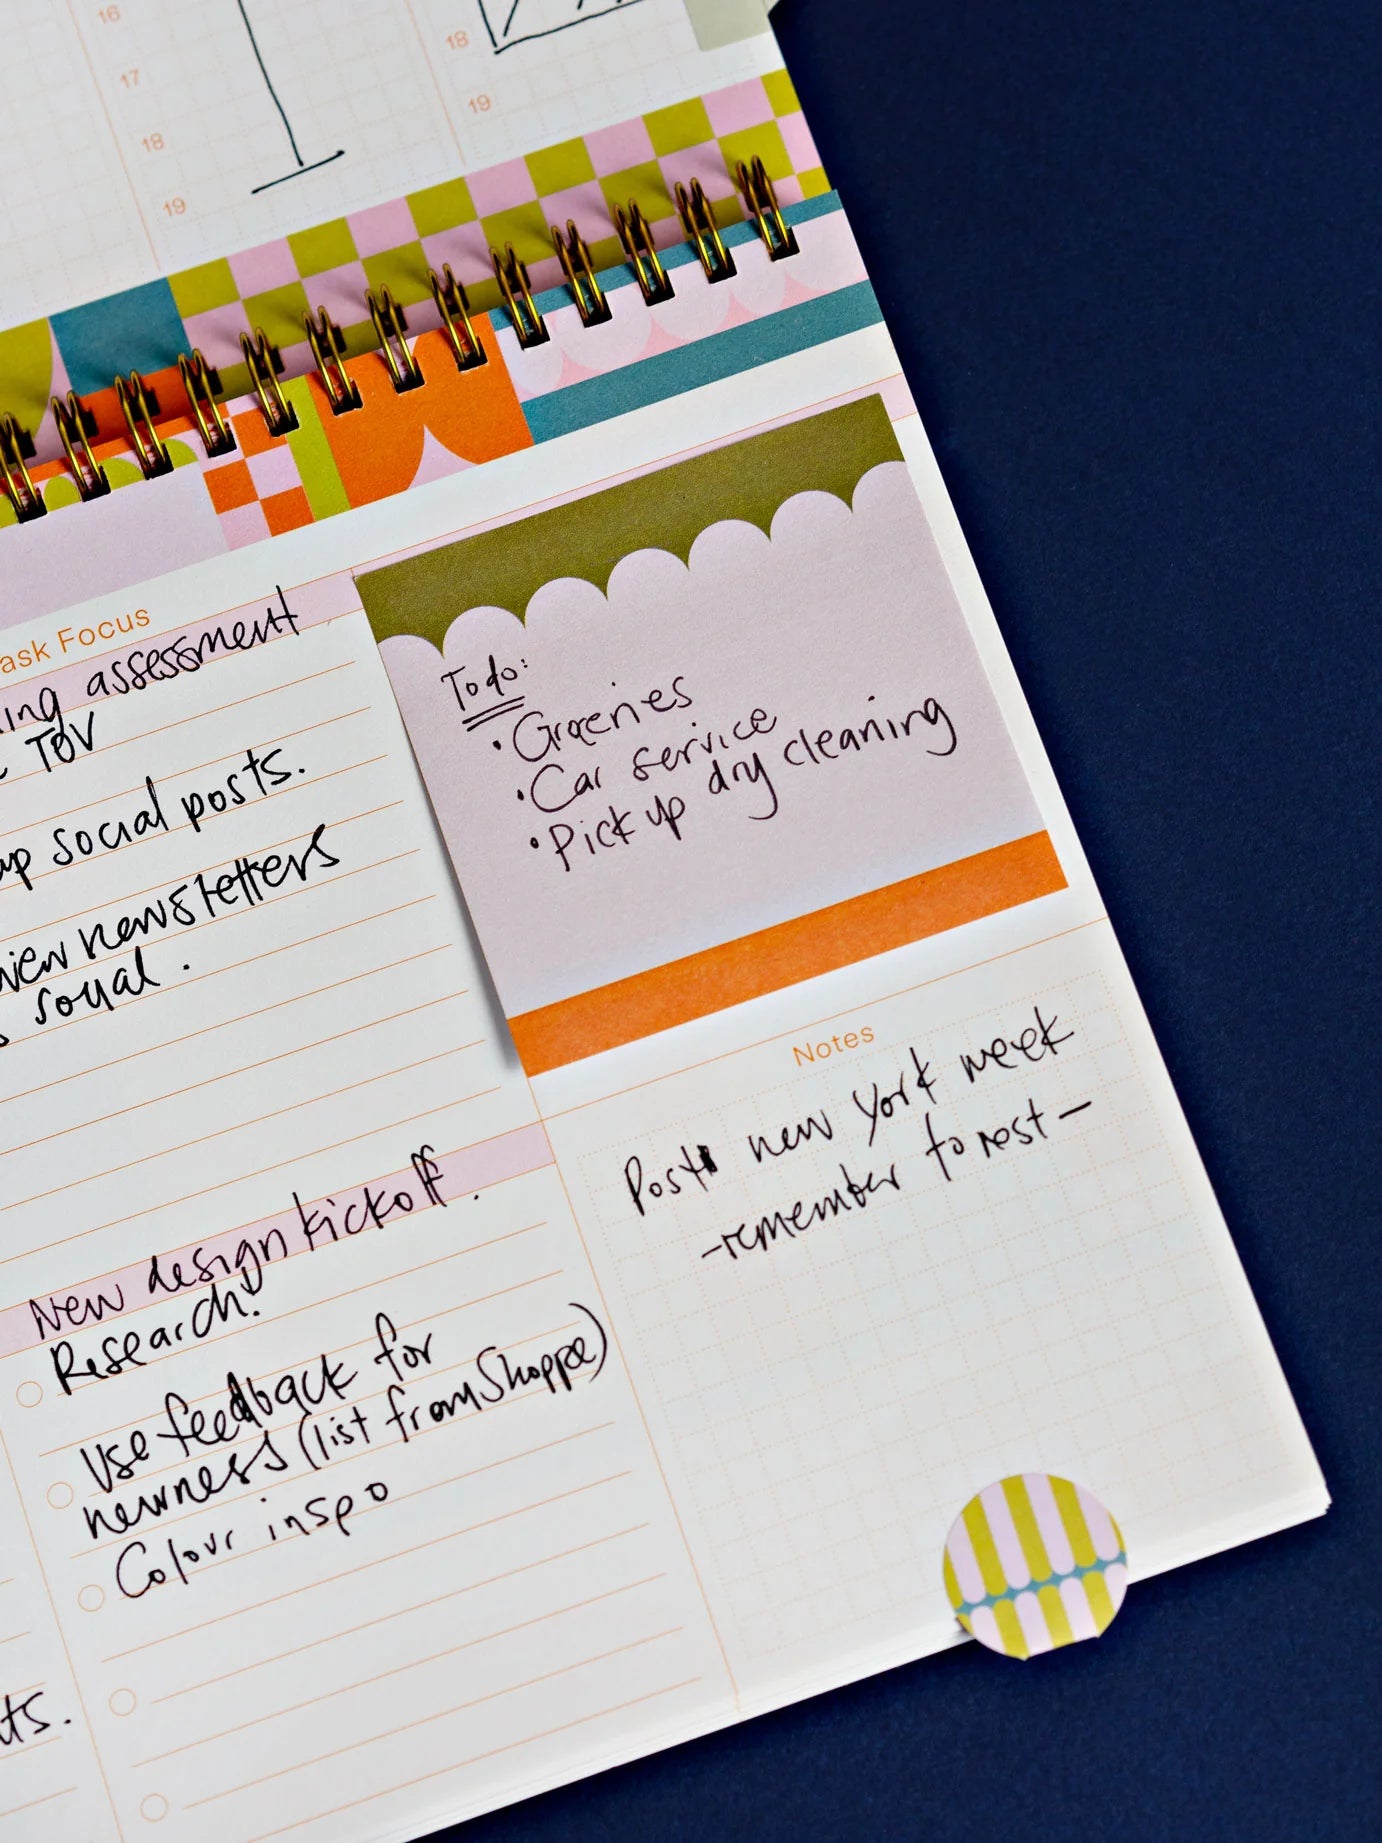 16
17
18
19
18
19
ask Focus
ing assessment
TOV
up social posts.
view newsletters
social.
Todo:
• Groceries
• Car service
• Pick up dry cleaning
Notes
Post new york week
- remember to rest -
New design kickoff.
Research.
Use feedback for
newness (list from Shoppe)
Colour inspo
ts.